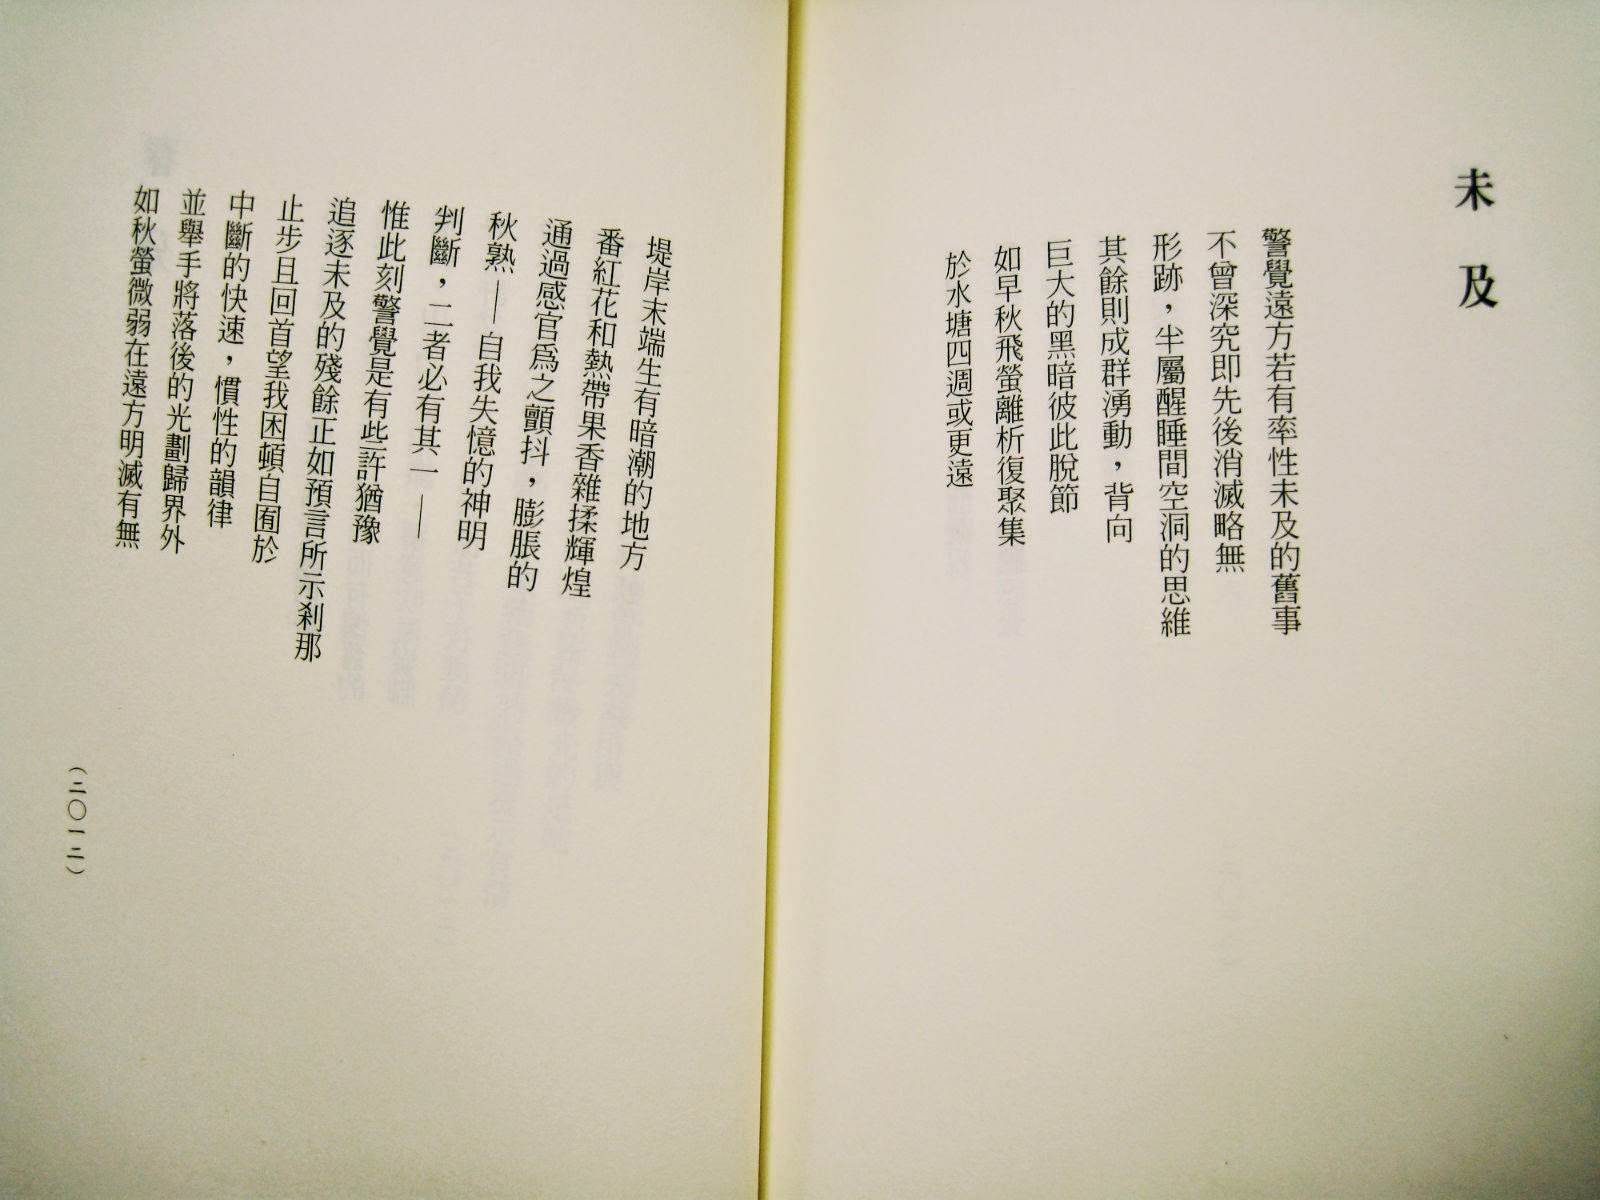 未及
警覺遠方若有率性未及的舊事
不曾深究即先後消滅略無
形跡，半屬醒睡間空洞的思維
其餘則成群湧動，背向
巨大的黑暗彼此脫節
如早秋飛螢離析復聚集
於水塘四週或更遠
堤岸末端生有暗潮的地方
番紅花和熱帶果香雜揉輝煌
通過感官為之顫抖，膨脹的
秋熟——自我失憶的神明
判斷，二者必有其一——
惟此刻警覺是有些許猶豫
追逐未及的殘餘正如預言所示剎那
止步且回首望我困頓自囿於
中斷的快速，慣性的韻律
並舉手將落後的光劃歸界外
如秋螢微弱在遠方明滅有無
（二〇一二）